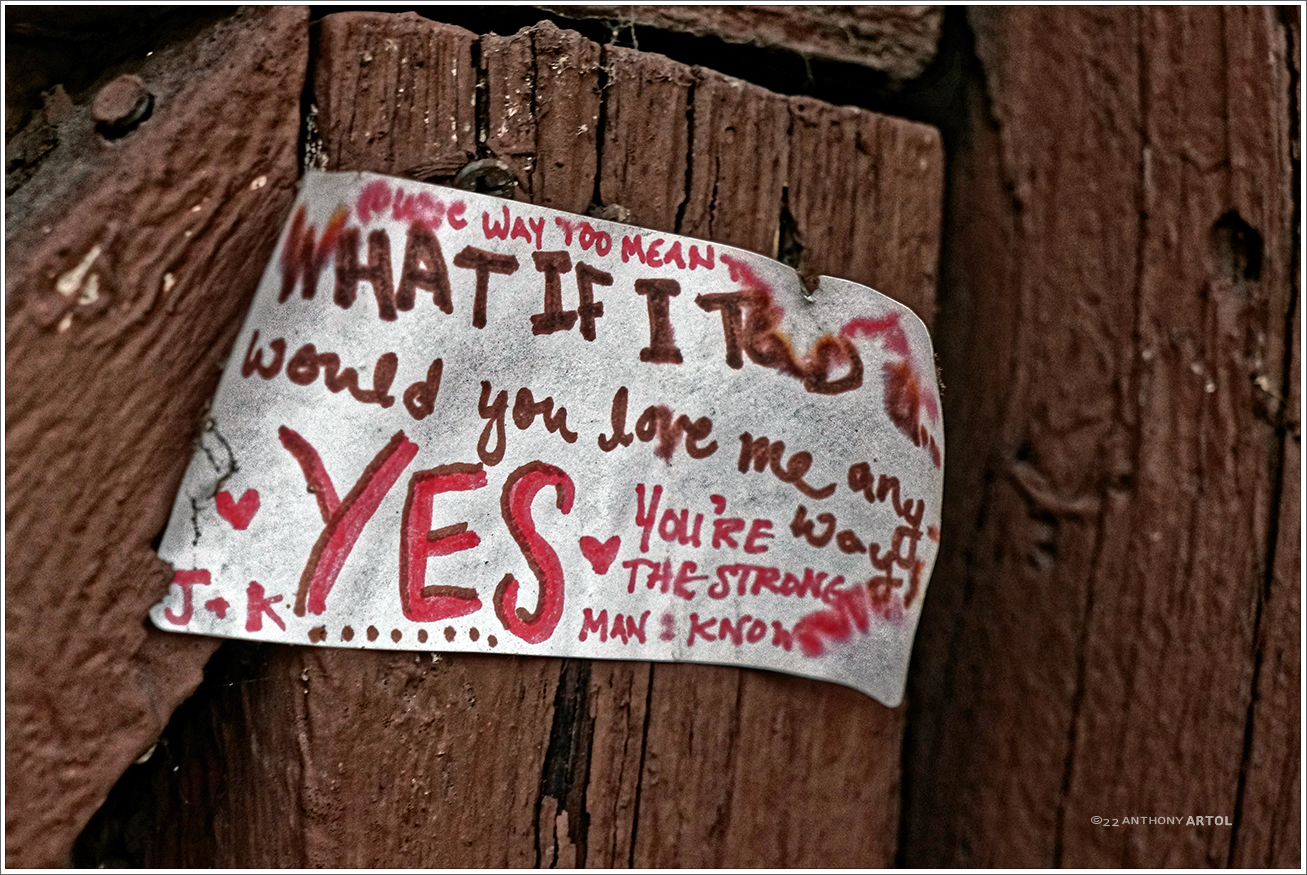 WAY TOO MEAN
WHAT IF I
would you love me any-
way?
YES
YOU'RE
THE STRONG
MAN I KNOW
J + K
©22 ANTHONY ARTOL